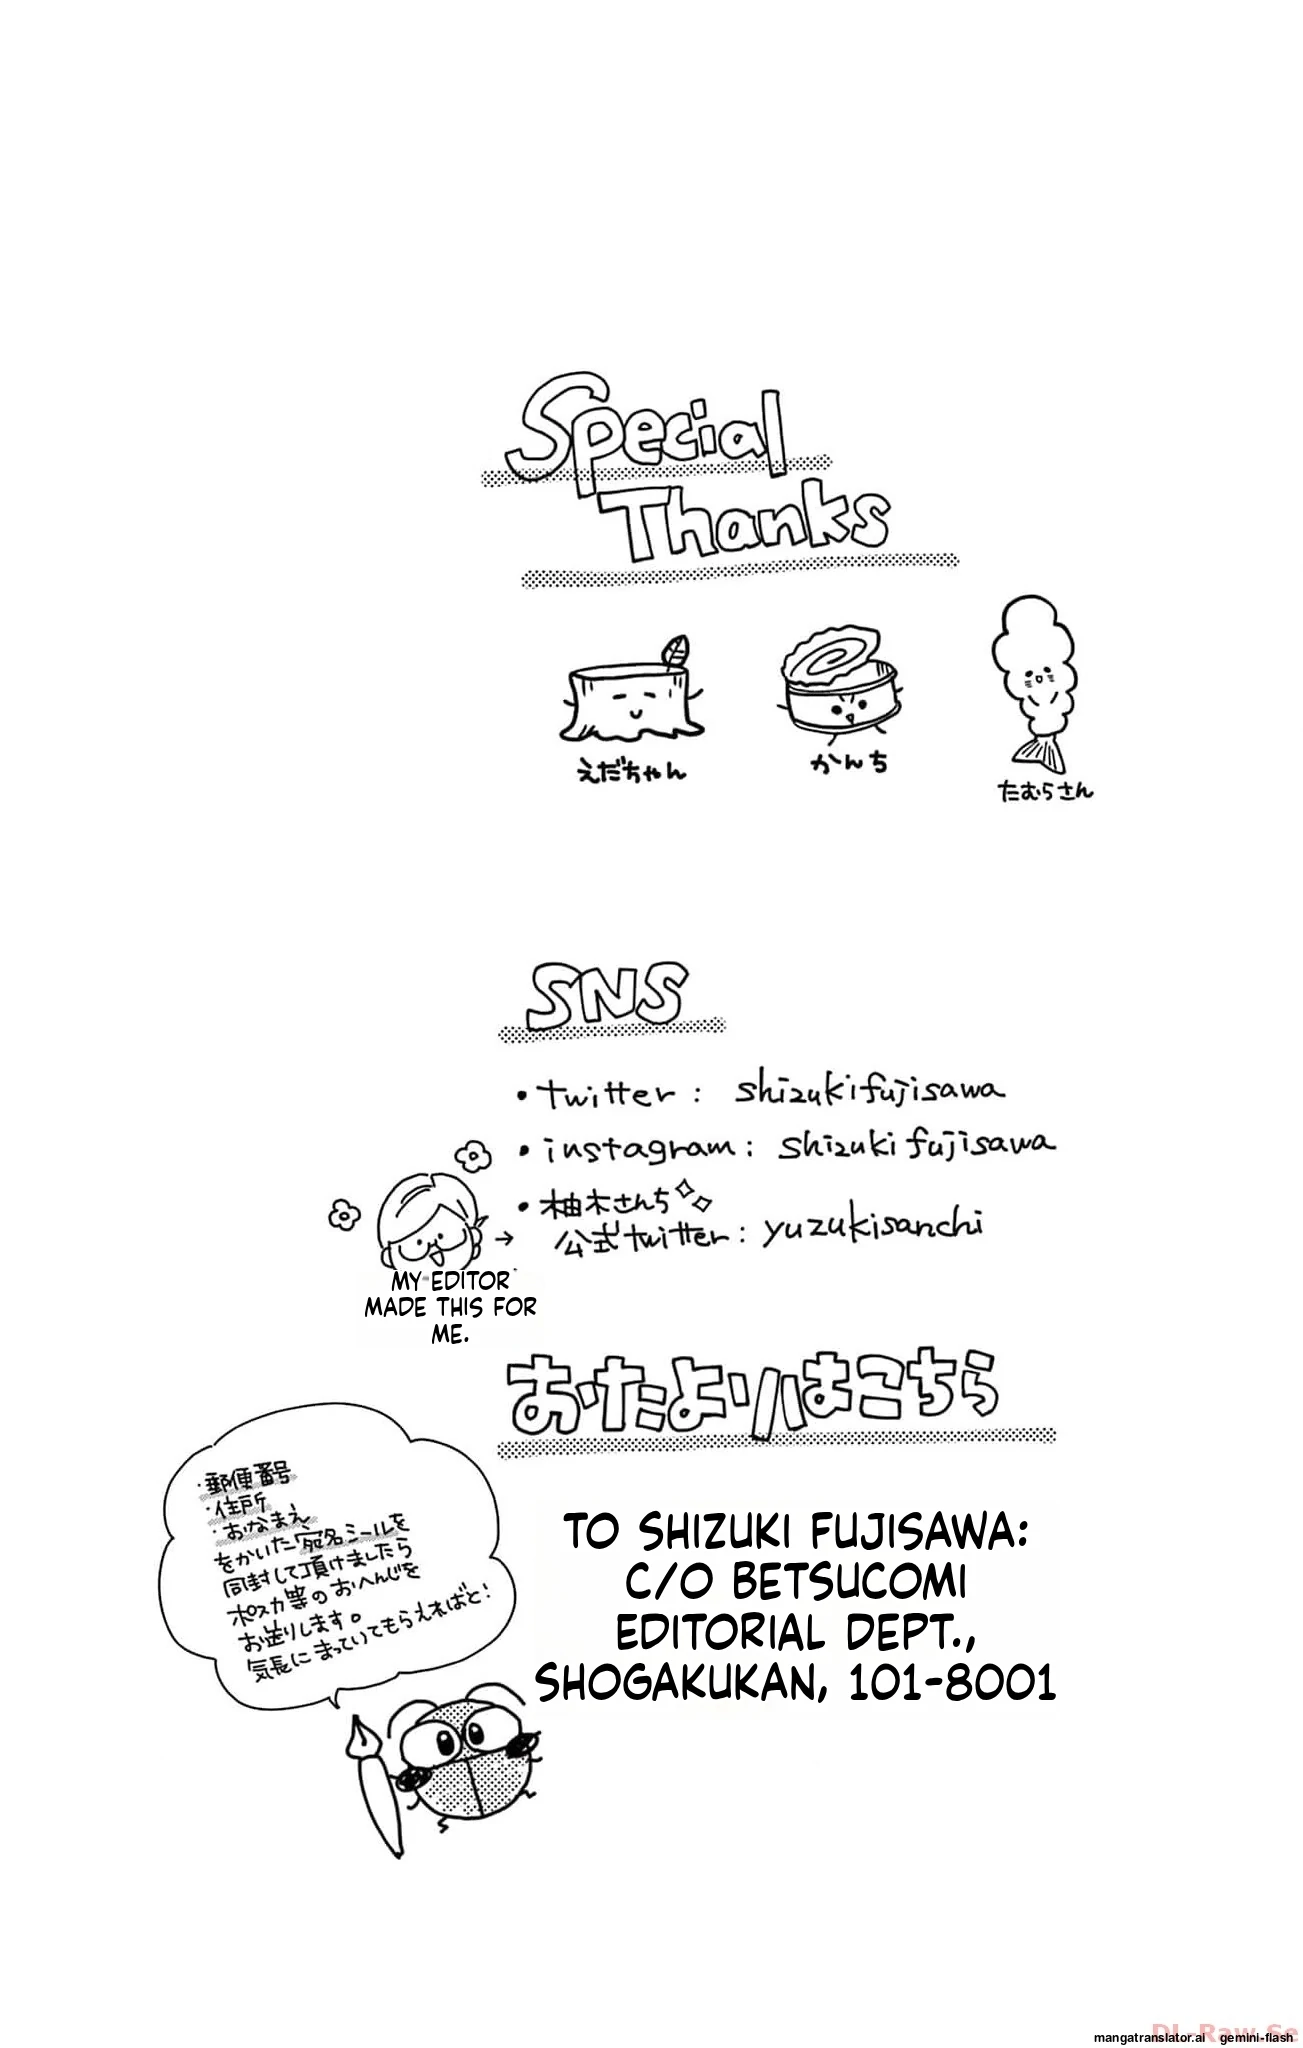 Special
Thanks
えだちゃん
かんち
たむらさん
SNS
・twitter : shizukifujisawa
・instagram : shizukifujisawa
・柚木さんち
公式twitter : yuzukisanchi
→
MY EDITOR
MADE THIS FOR
ME.
おたよりはこちら
・郵便番号
・住所
・おなまえ
をかいた宛名シールを
同封して頂けましたら
ポスカ等のおへんじを
お送りします。
気長にまっていてもらえればと!
TO SHIZUKI FUJISAWA:
C/O BETSUCOMI
EDITORIAL DEPT.,
SHOGAKUKAN, 101-8001
DL-Raw.Se
mangatranslator.ai gemini-flash